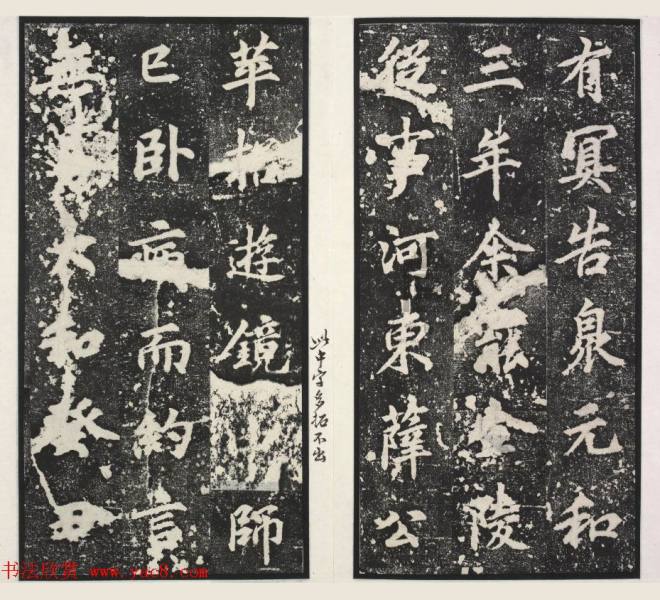 有冥告泉元和
三年余罷金陵
從事河東薛公
苹招遊鏡中師
已卧病而約言
無大和癸丑
此中字多拓不出
书法欣赏 www.yac8.com